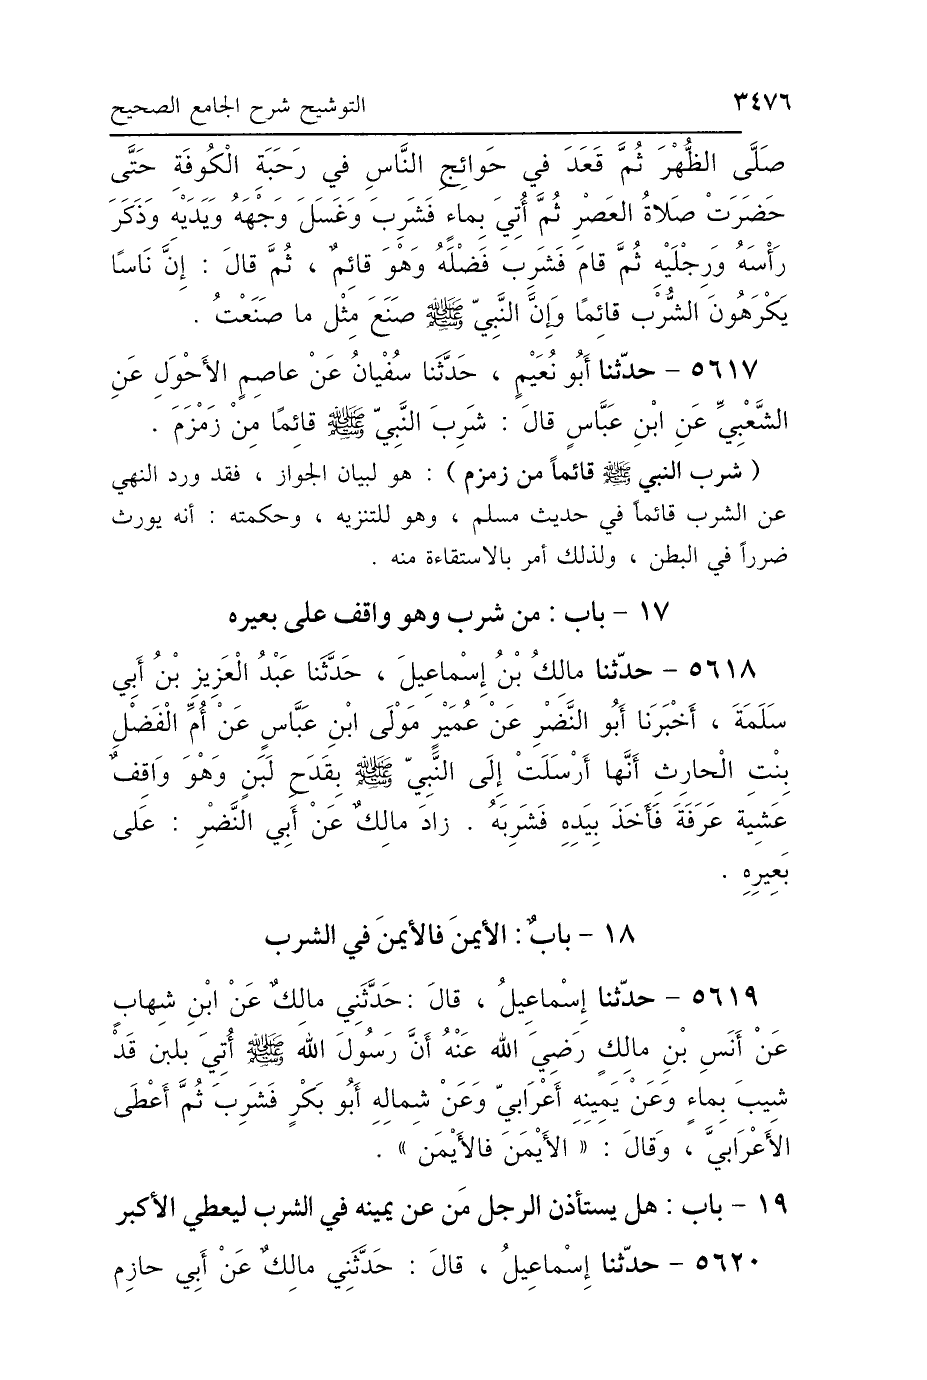 ٣٤٧٦ التوشيح شرح الجامع الصحيح
صَلَّى الظُّهْرَ ثُمَّ قَعَدَ في حَوائِجِ النَّاسِ في رَحَبَةِ الْكُوفَةِ حَتَّى
حَضَرَتْ صَلاةُ العَصْرِ ثُمَّ أُتِيَ بِماءٍ فَشَرِبَ وَغَسَلَ وَجْهَهُ وَيَدَيْهِ وَذَكَرَ
رَأْسَهُ وَرِجْلَيْهِ ثُمَّ قامَ فَشَرِبَ فَضْلَهُ وَهْوَ قائِمٌ ، ثُمَّ قالَ : إِنَّ نَاسًا
يَكْرَهُونَ الشُّرْبَ قائِمًا وَإِنَّ النَّبِيّ ﷺ صَنَعَ مِثْلَ ما صَنَعْتُ .
٥٦١٧ - حدّثنا أَبُو نُعَيْمٍ ، حَدَّثَنا سُفْيانُ عَنْ عاصِمٍ الأَحْوَلِ عَنِ
الشَّعْبِيِّ عَنِ ابْنِ عَبَّاسٍ قالَ : شَرِبَ النَّبِيّ ﷺ قائِمًا مِنْ زَمْزَمَ .
( شرب النبي ﷺ قائماً من زمزم ) : هو لبيان الجواز ، فقد ورد النهي
عن الشرب قائماً في حديث مسلم ، وهو للتنزيه ، وحكمته : أنه يورث
ضرراً في البطن ، ولذلك أمر بالاستقاءة منه .
١٧ - باب : من شرب وهو واقف على بعيره
٥٦١٨ - حدّثنا مالِكُ بْنُ إِسْماعِيلَ ، حَدَّثَنا عَبْدُ الْعَزِيزِ بْنُ أَبِي
سَلَمَةَ ، أَخْبَرَنا أَبُو النَّضْرِ عَنْ عُمَيْرٍ مَوْلَى ابْنِ عَبَّاسٍ عَنْ أُمِّ الْفَضْلِ
بِنْتِ الْحارِثِ أَنَّها أَرْسَلَتْ إِلَى النَّبِيّ ﷺ بِقَدَحِ لَبَنٍ وَهْوَ وَاقِفٌ
عَشِيةَ عَرَفَةَ فَأَخَذَ بِيَدِهِ فَشَرِبَهُ . زادَ مالِكٌ عَنْ أَبِي النَّضْرِ : عَلى
بَعِيرِهِ .
١٨ - بابٌ : الأيمنَ فالأيمنَ في الشرب
٥٦١٩ - حدّثنا إِسْماعِيلُ ، قالَ : حَدَّثَنِي مالِكٌ عَنْ ابْنِ شِهابٍ
عَنْ أَنَسِ بْنِ مالِكٍ رَضِيَ الله عَنْهُ أَنَّ رَسُولَ الله ﷺ أُتِيَ بلبن قَدْ
شِيبَ بِماءٍ وَعَنْ يَمِينِهِ أَعْرَابيّ وَعَنْ شمالِهِ أَبُو بَكْرٍ فَشَرِبَ ثُمَّ أَعْطَى
الأَعْرَابيَّ ، وَقالَ : « الأَيْمَنَ فالأَيْمَنَ » .
١٩ - باب : هل يستأذن الرجل مَن عن يمينه في الشرب ليعطي الأكبر
٥٦٢٠ - حدّثنا إِسْماعِيلُ ، قالَ : حَدَّثَنِي مالِكٌ عَنْ أَبِي حازِمِ